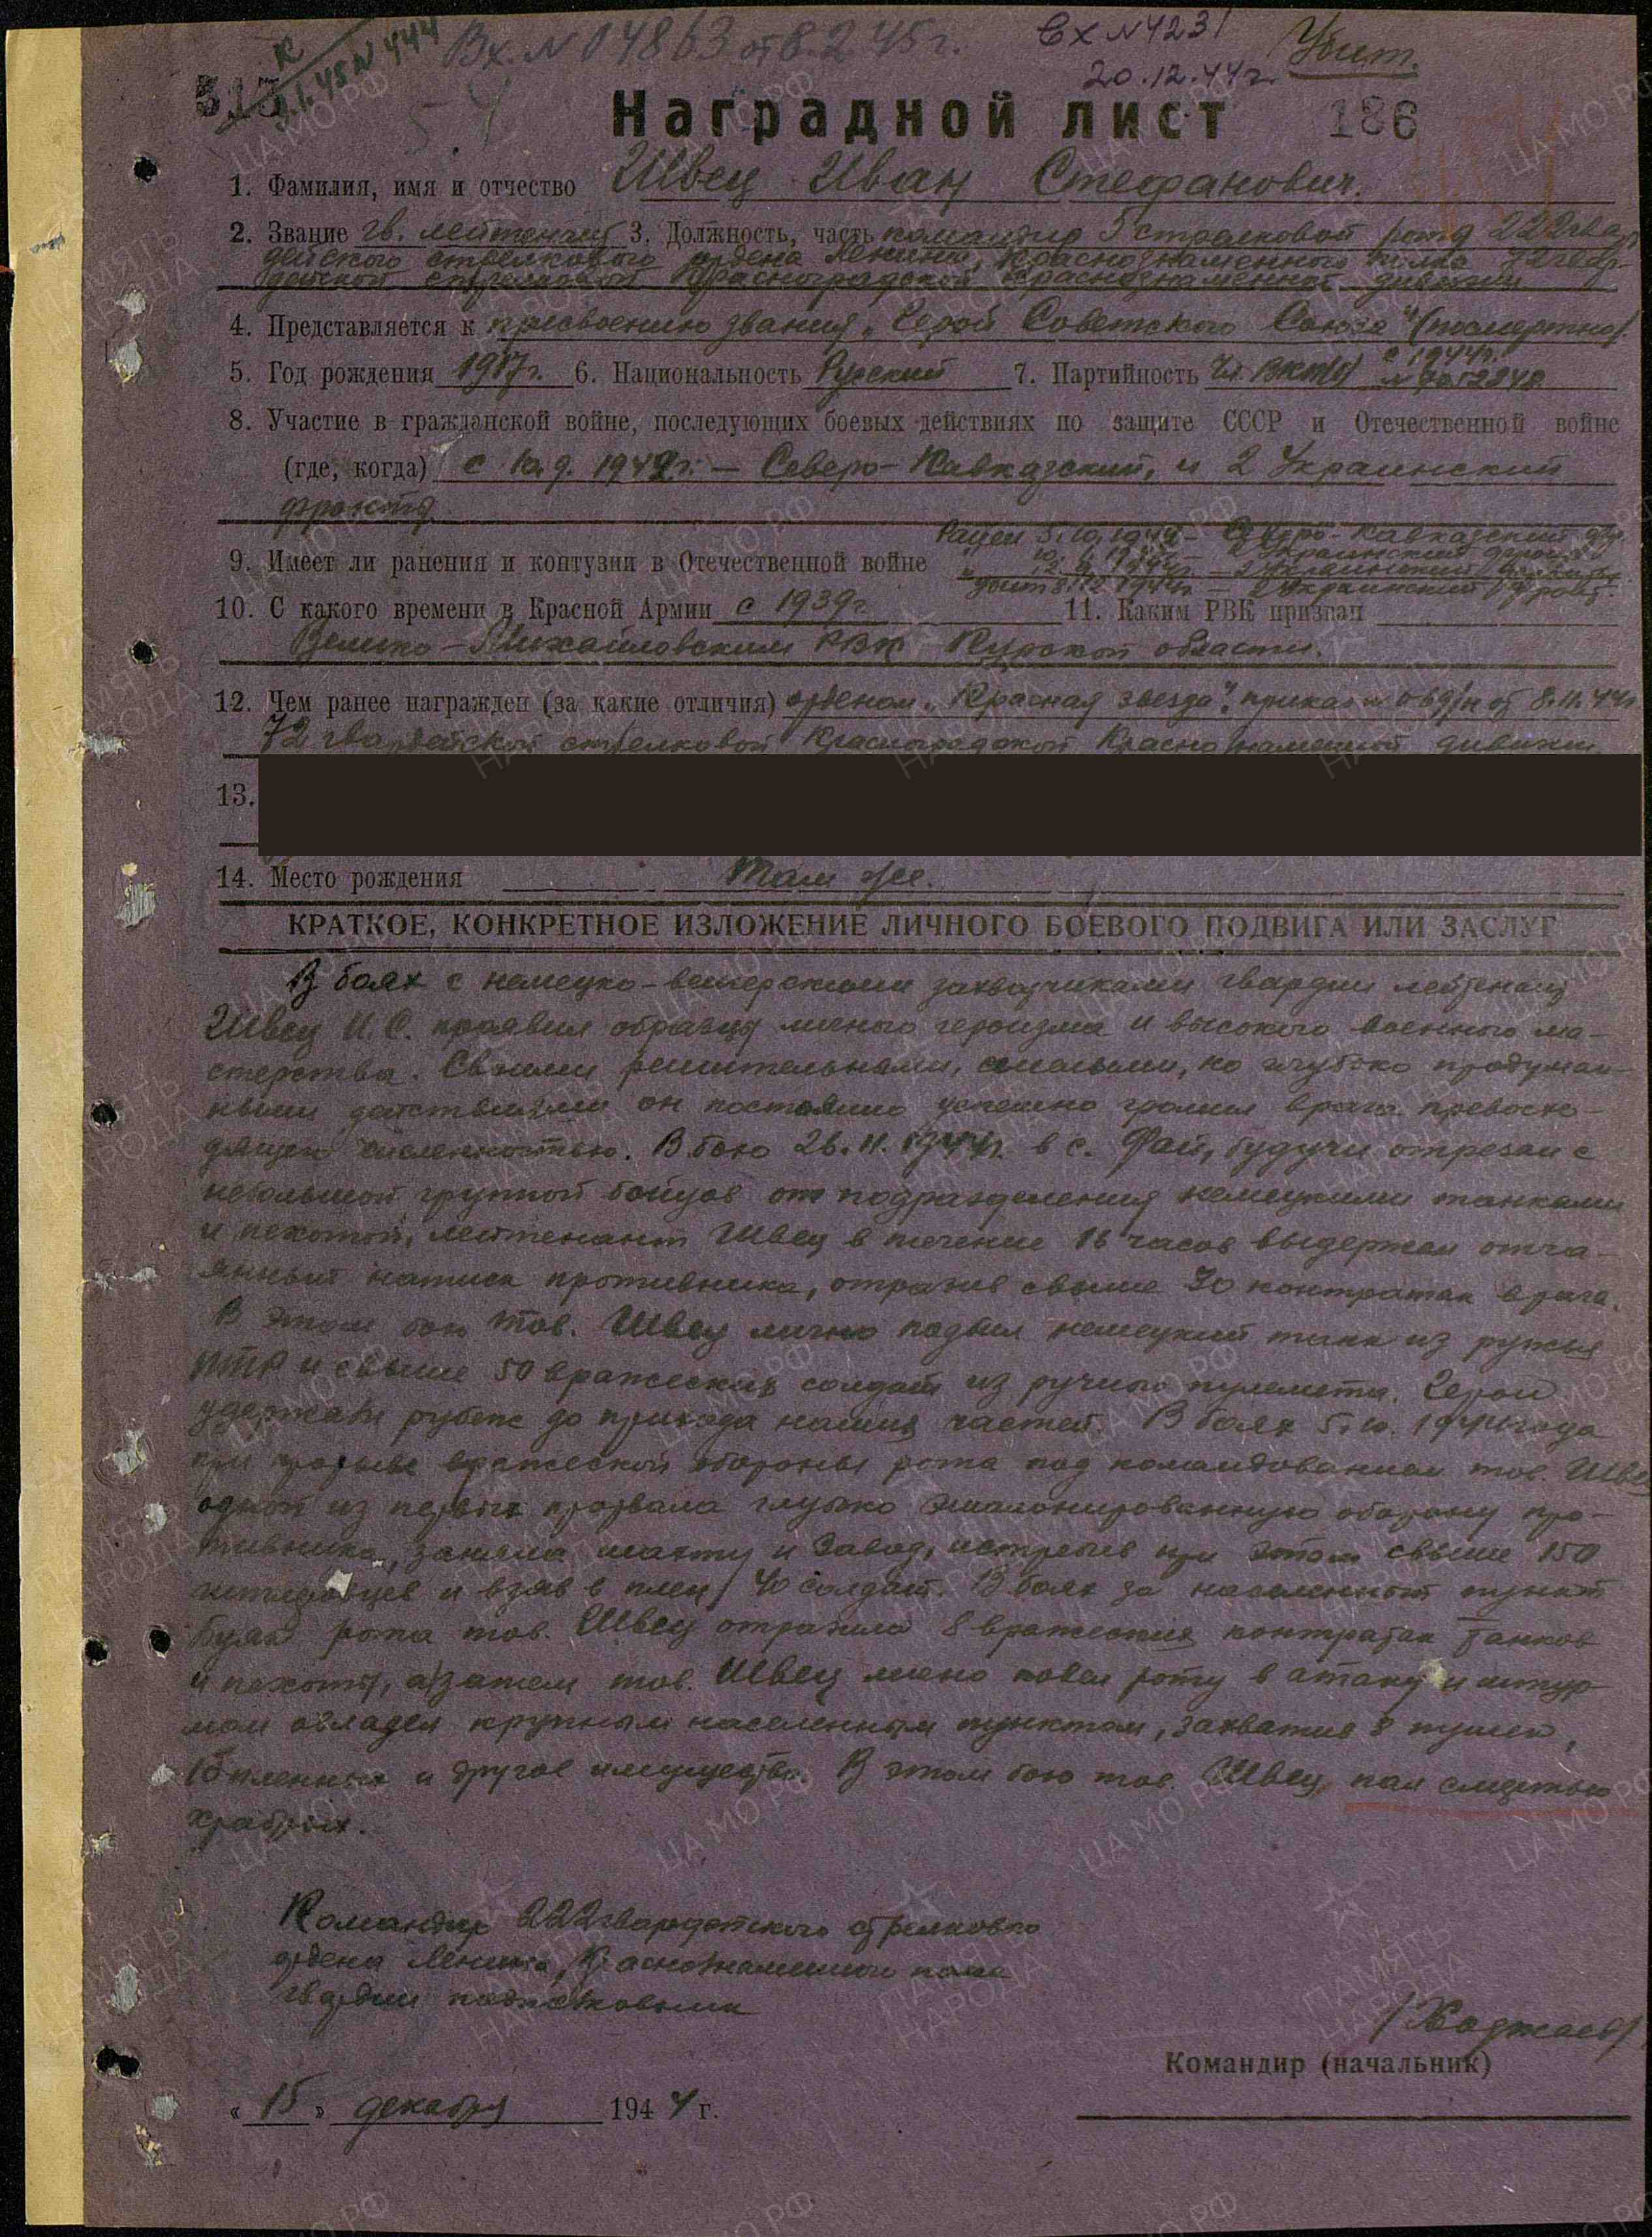 Вх. N 04863 от 8.2.45г.
Вх N 4231
20.12.44г.
Убит.
К
9.1.45 N 444
515
54
Наградной лист 186
1. Фамилия, имя и отчество Швец Иван Стефанович.
2. Звание гв. лейтенант 3. Должность, часть командир 5 стрелковой роты 222 гвар
дейского стрелкового ордена Ленина, Краснознаменного полка 72 гвар-
дейской стрелковой Красноградской Краснознаменной дивизии
4. Представляется к присвоению звания „Герой Советского Союза" (посмертно).
5. Год рождения 1917г. 6. Национальность Русский 7. Партийность Чл. ВКП(б) с 1944г.
8. Участие в гражданской войне, последующих боевых действиях по защите СССР и Отечественной войне
(где, когда) с 1942г. – Северо-Кавказский, и 2 Украинский
фронты
9. Имеет ли ранения и контузии в Отечественной войне Ранен 5.10.1942 – Северо-Кавказский фр.
2 Украинский фронт
2 Украинский фронт
убит 8.12.1944г. – 2 Украинский фронт.
10. С какого времени в Красной Армии с 1939г. 11. Каким РВК призван
Велико-Михайловским РВК Курской области.
12. Чем ранее награжден (за какие отличия) орденом „Красная звезда", приказ 069/н от 8.11.44г
72 гвардейской стрелковой Красноградской Краснознаменной дивизии
13.
14. Место рождения Там же.
КРАТКОЕ, КОНКРЕТНОЕ ИЗЛОЖЕНИЕ ЛИЧНОГО БОЕВОГО ПОДВИГА ИЛИ ЗАСЛУГ
В боях с немецко-венгерскими захватчиками гвардии лейтенант
Швец И.С. проявил образцы личного героизма и высокого военного ма-
стерства. Своими решительными, смелыми, но глубоко продуман-
ными действиями он постоянно успешно громил врага превосхо-
дящего численностью. В бою 26.11.1944г. в с. Фай, будучи отрезан с
небольшой группой бойцов от подразделения немецкими танками
и пехотой, лейтенант Швец в течение 16 часов выдержал отча-
янный натиск противника, отразив свыше 30 контратак врага.
В этом бою тов. Швец лично подбил немецкий танк из ружья
ПТР и свыше 50 вражеских солдат из ручного пулемета. Герои
удержали рубеж до прихода наших частей. В боях 5.12.1944 года
при прорыве вражеской обороны рота под командованием тов. Швец
одной из первых прорвала глубоко эшалонированную оборону про-
тивника, заняла шахту и завод, истребив при этом свыше 150
гитлеровцев и взяв в плен 40 солдат. В боях за населенный пункт
Буяк рота тов. Швец отразила 8 вражеских контратак танков
и пехоты, а затем тов. Швец лично повел роту в атаку и штур-
мом овладел крупным населенным пунктом, захватив 8 пушек,
15 пленных и другое имущество. В этом бою тов. Швец, пал смертью
храбрых.
Командир 222 гвардейского стрелкового
ордена Ленина, Краснознаменного полка
гвардии подполковник
/Ходжаев/
Командир (начальник)
« 15 » декабря 1944 г.
ПАМЯТЬ НАРОДА
ЦА МО РФ